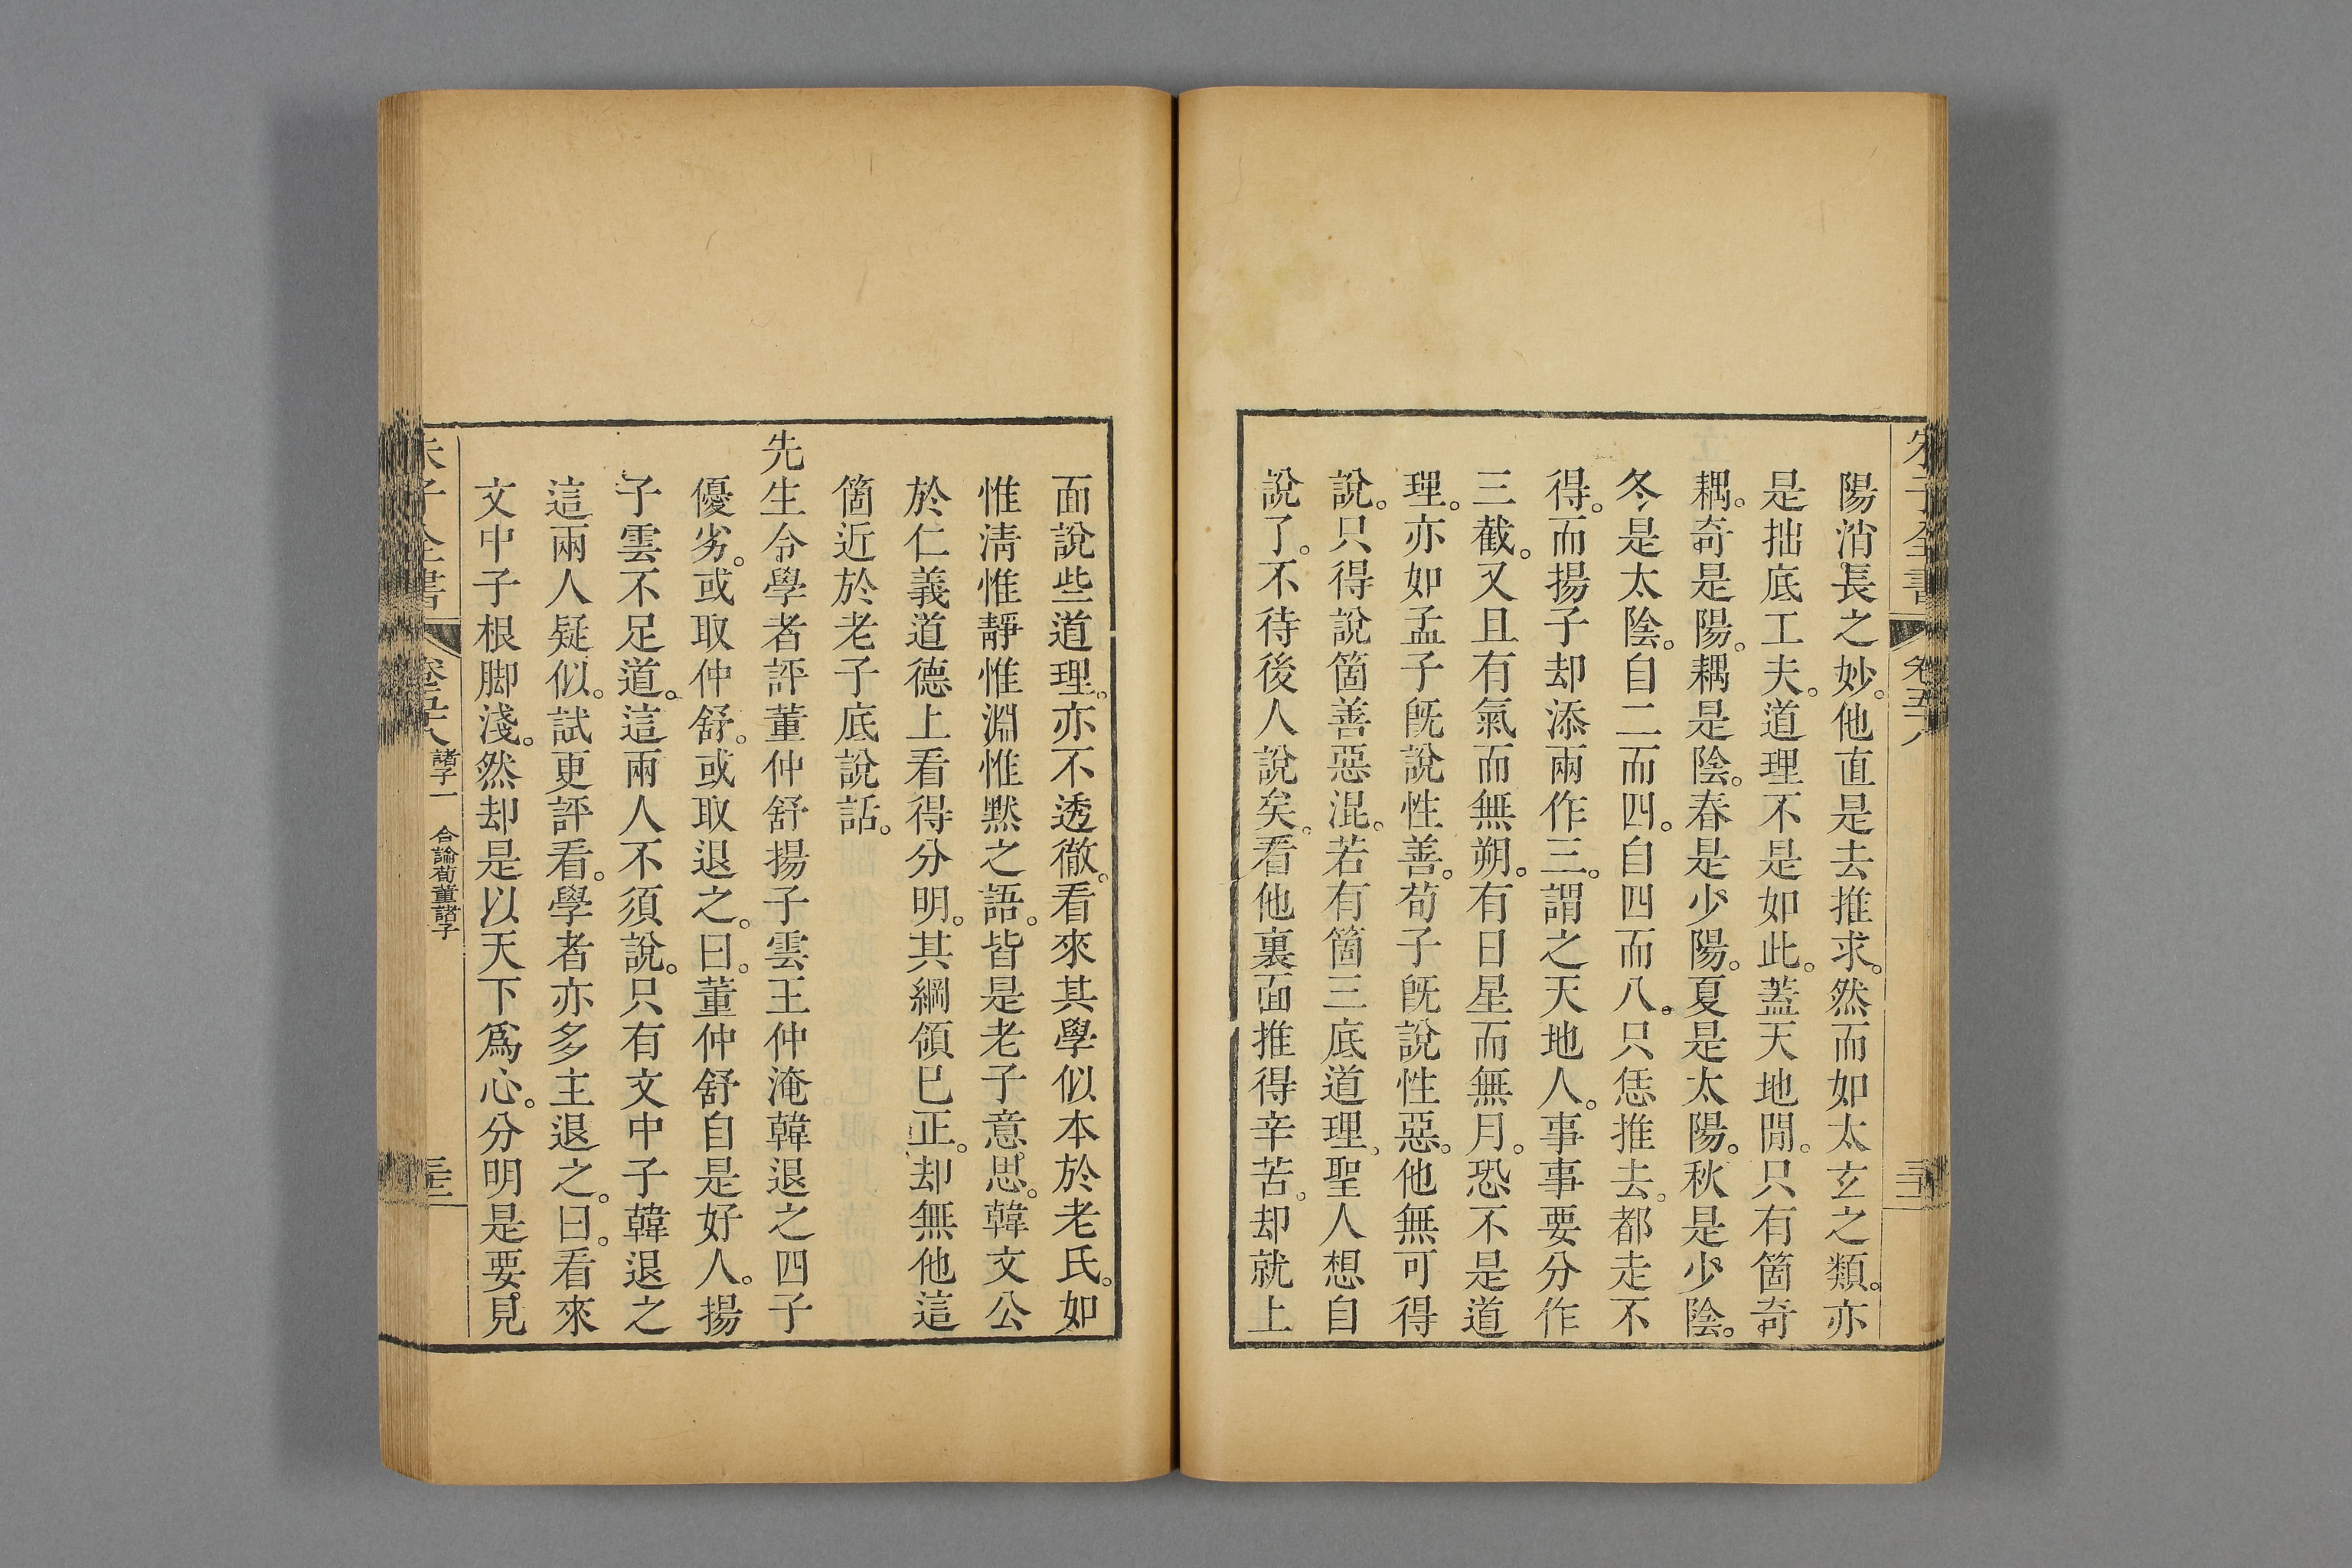 陽消長之妙。他直是去推求。然而如太玄之類。亦
是拙底工夫。道理不是如此。蓋天地間。只有箇奇
耦。奇是陽。耦是陰。春是少陽。夏是太陽。秋是少陰。
冬是太陰。自二而四。自四而八。只恁推去。都走不
得。而揚子却添兩作三。謂之天地人。事事要分作
三截。又且有氣而無朔。有日星而無月。恐不是道
理。亦如孟子旣說性善。荀子旣說性惡。他無可得
說。只得說箇善惡混。若有箇三底道理。聖人想自
說了。不待後人說矣。看他裏面推得辛苦。却就上
面說些道理。亦不透徹。看來其學似本於老氏。如
惟淸惟靜惟淵惟黙之語。皆是老子意思。韓文公
於仁義道德上看得分明。其綱領已正。却無他這
箇近於老子底說話。
先生令學者評董仲舒揚子雲王仲淹韓退之四子
優劣。或取仲舒。或取退之。曰。董仲舒自是好人。揚
子雲不足道。這兩人不須說。只有文中子韓退之
這兩人疑似。試更評看。學者亦多主退之。曰。看來
文中子根脚淺。然却是以天下爲心。分明是要見
朱子全書 卷五十八 諸子一 合論荀董諸子